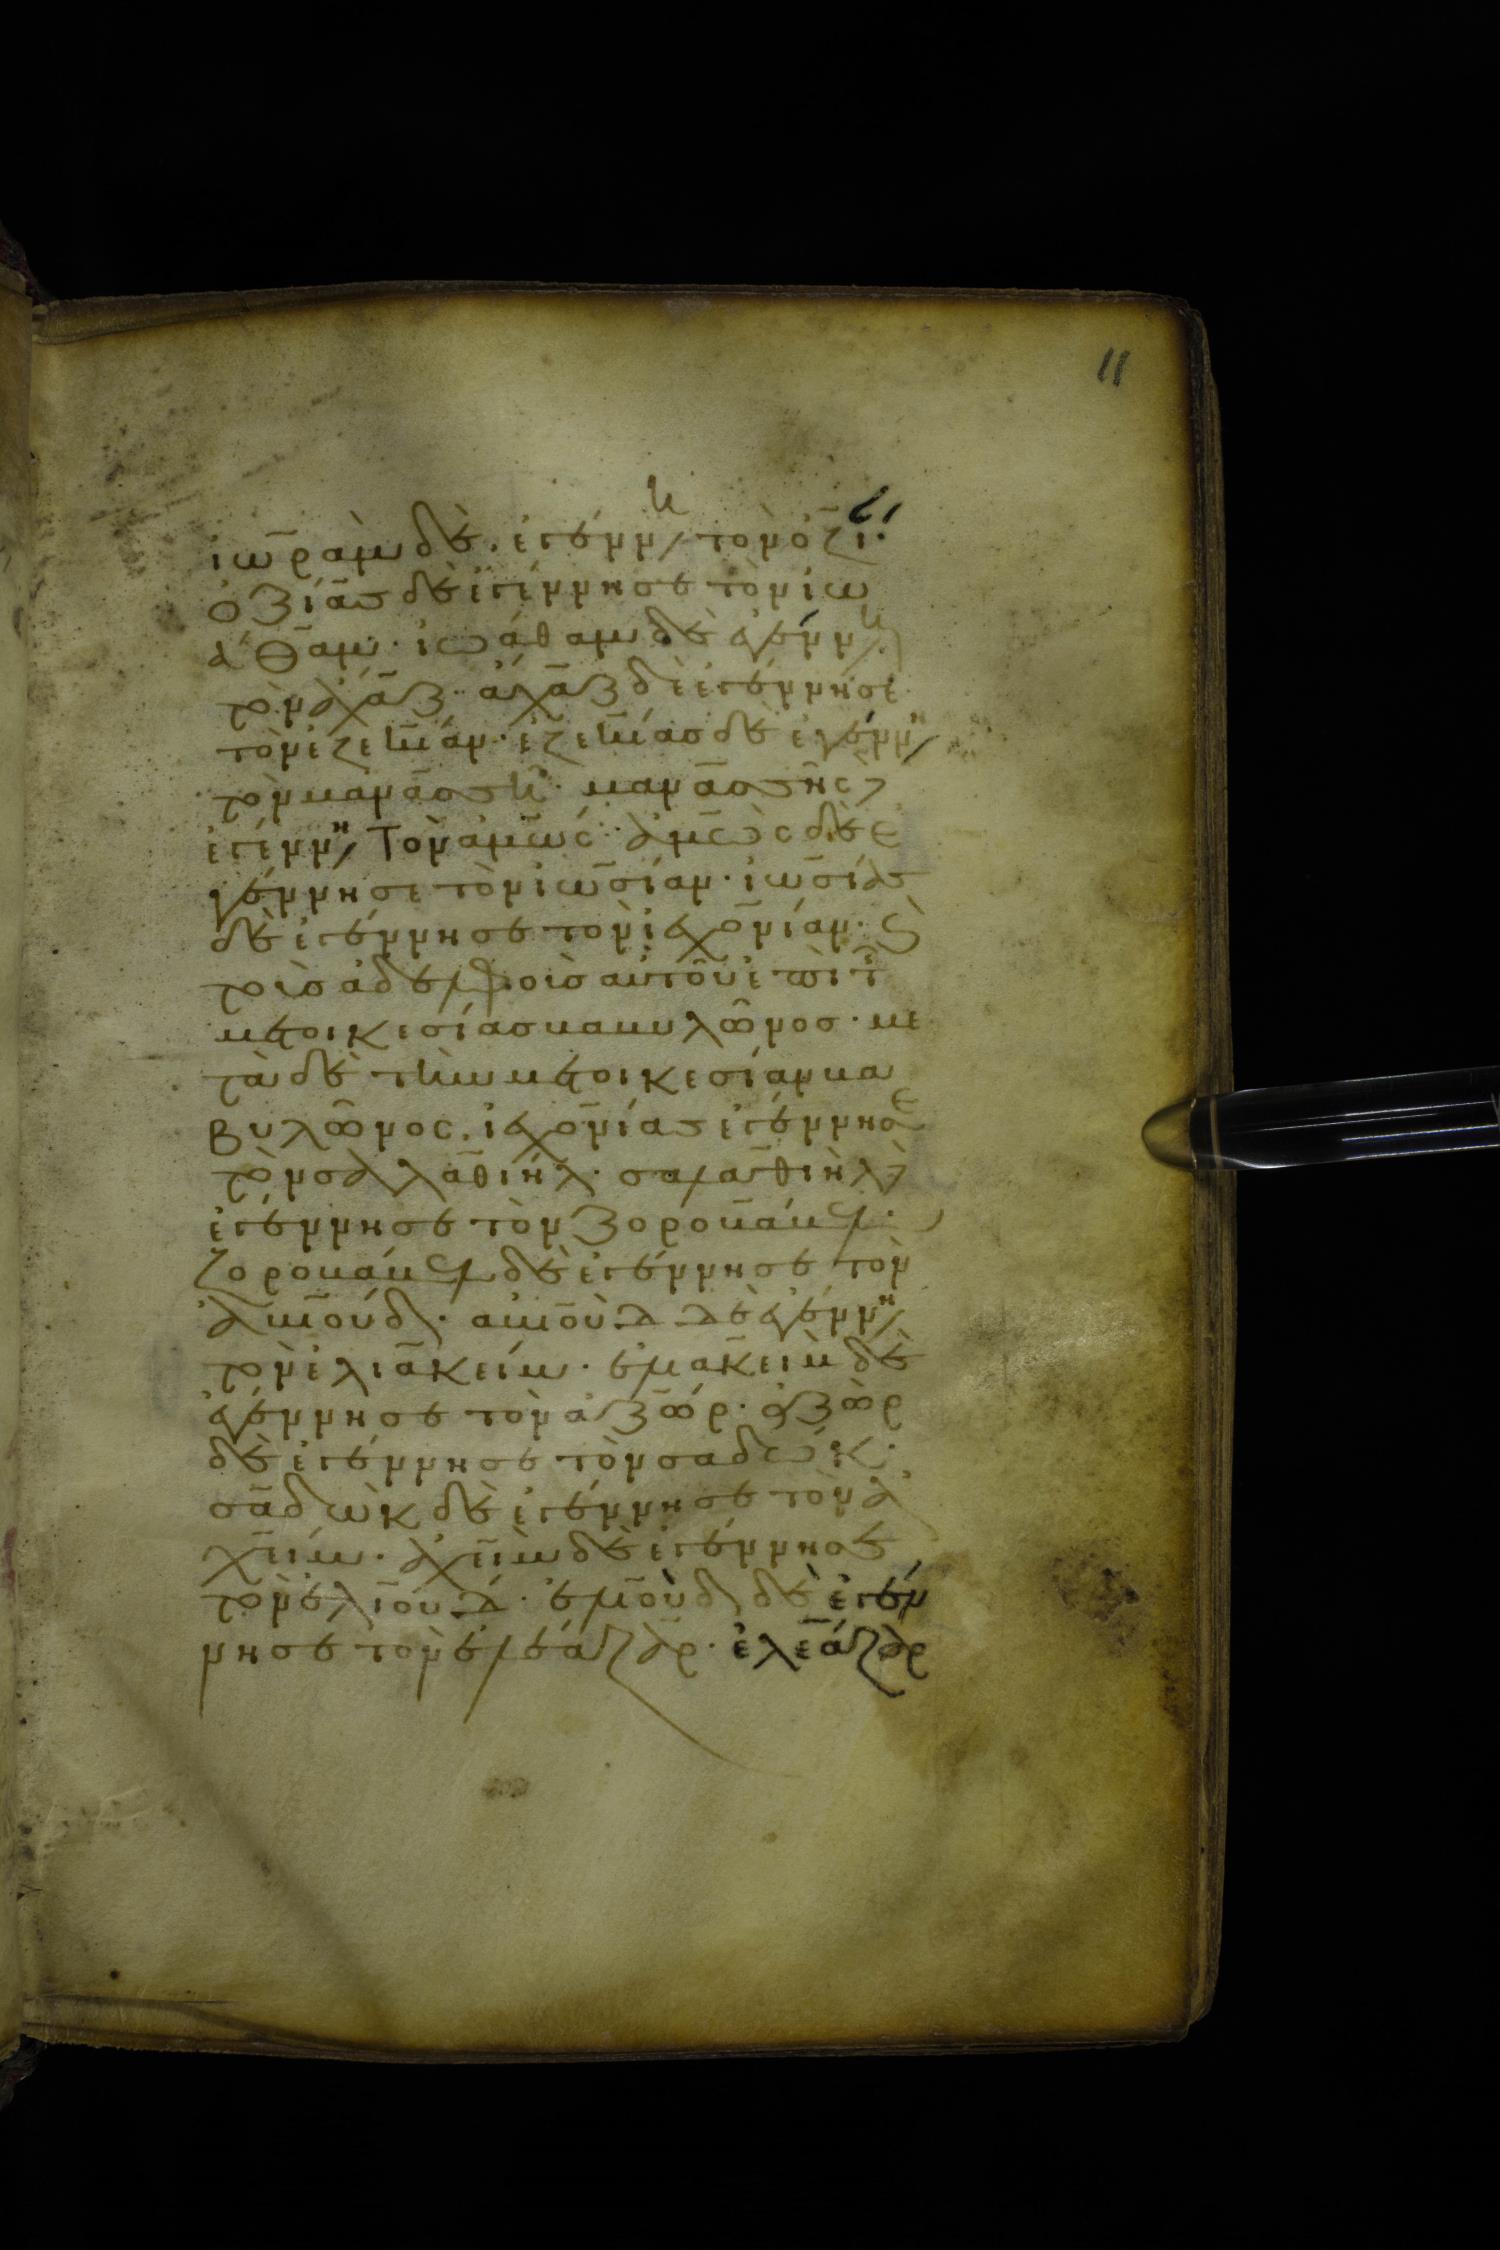 11
ἰωραμ δὲ· ἐγέννη τὸν ὀζί·
ὀζίας δὲ ἐγέννησε τὸν ἰω
άθαμ· ἰωάθαμ δὲ ἐγέννη
τὸν ἀχάζ· ἀχὰζ δὲ ἐγέννησε
τὸν ἐζεκίαν· ἐζεκίας δὲ ἐγέννη
τὸν μανασσῆ· μανασσῆς δὲ
ἐγέννη τὸν ἀμώς· ἀμὼς δὲ ἐ
γέννησε τὸν ἰωσίαν· ἰωσίας
δὲ ἐγέννησε τὸν ἰεχονίαν· ϗ
τοὺς ἀδελφοὺς αὐτοῦ ἐπὶ τ
μετοικεσίας βαβυλῶνος· με
τὰ δὲ τὴν μετοικεσίαν βα
βυλῶνος· ἰεχονίας ἐγέννησε
τὸν σαλαθιήλ· σαλαθιὴλ δὲ
ἐγέννησε τὸν ζοροβάβελ·
ζοροβάβελ δὲ ἐγέννησε τὸν
ἀβιούδ· ἀβιοὺδ δὲ ἐγέννη
τὸν ἐλιακείμ· ἐλιακεὶμ δὲ
ἐγέννησε τὸν ἀζώρ· ἀζὼρ
δὲ ἐγέννησε τὸν σαδώκ·
σαδὼκ δὲ ἐγέννησε τὸν ἀ
χείμ· ἀχεὶμ δὲ ἐγέννησε
τὸν ἐλιούδ· ἐλιοὺδ δὲ ἐγέν
νησε τὸν ἐλεάζαρ· ἐλεάζαρ